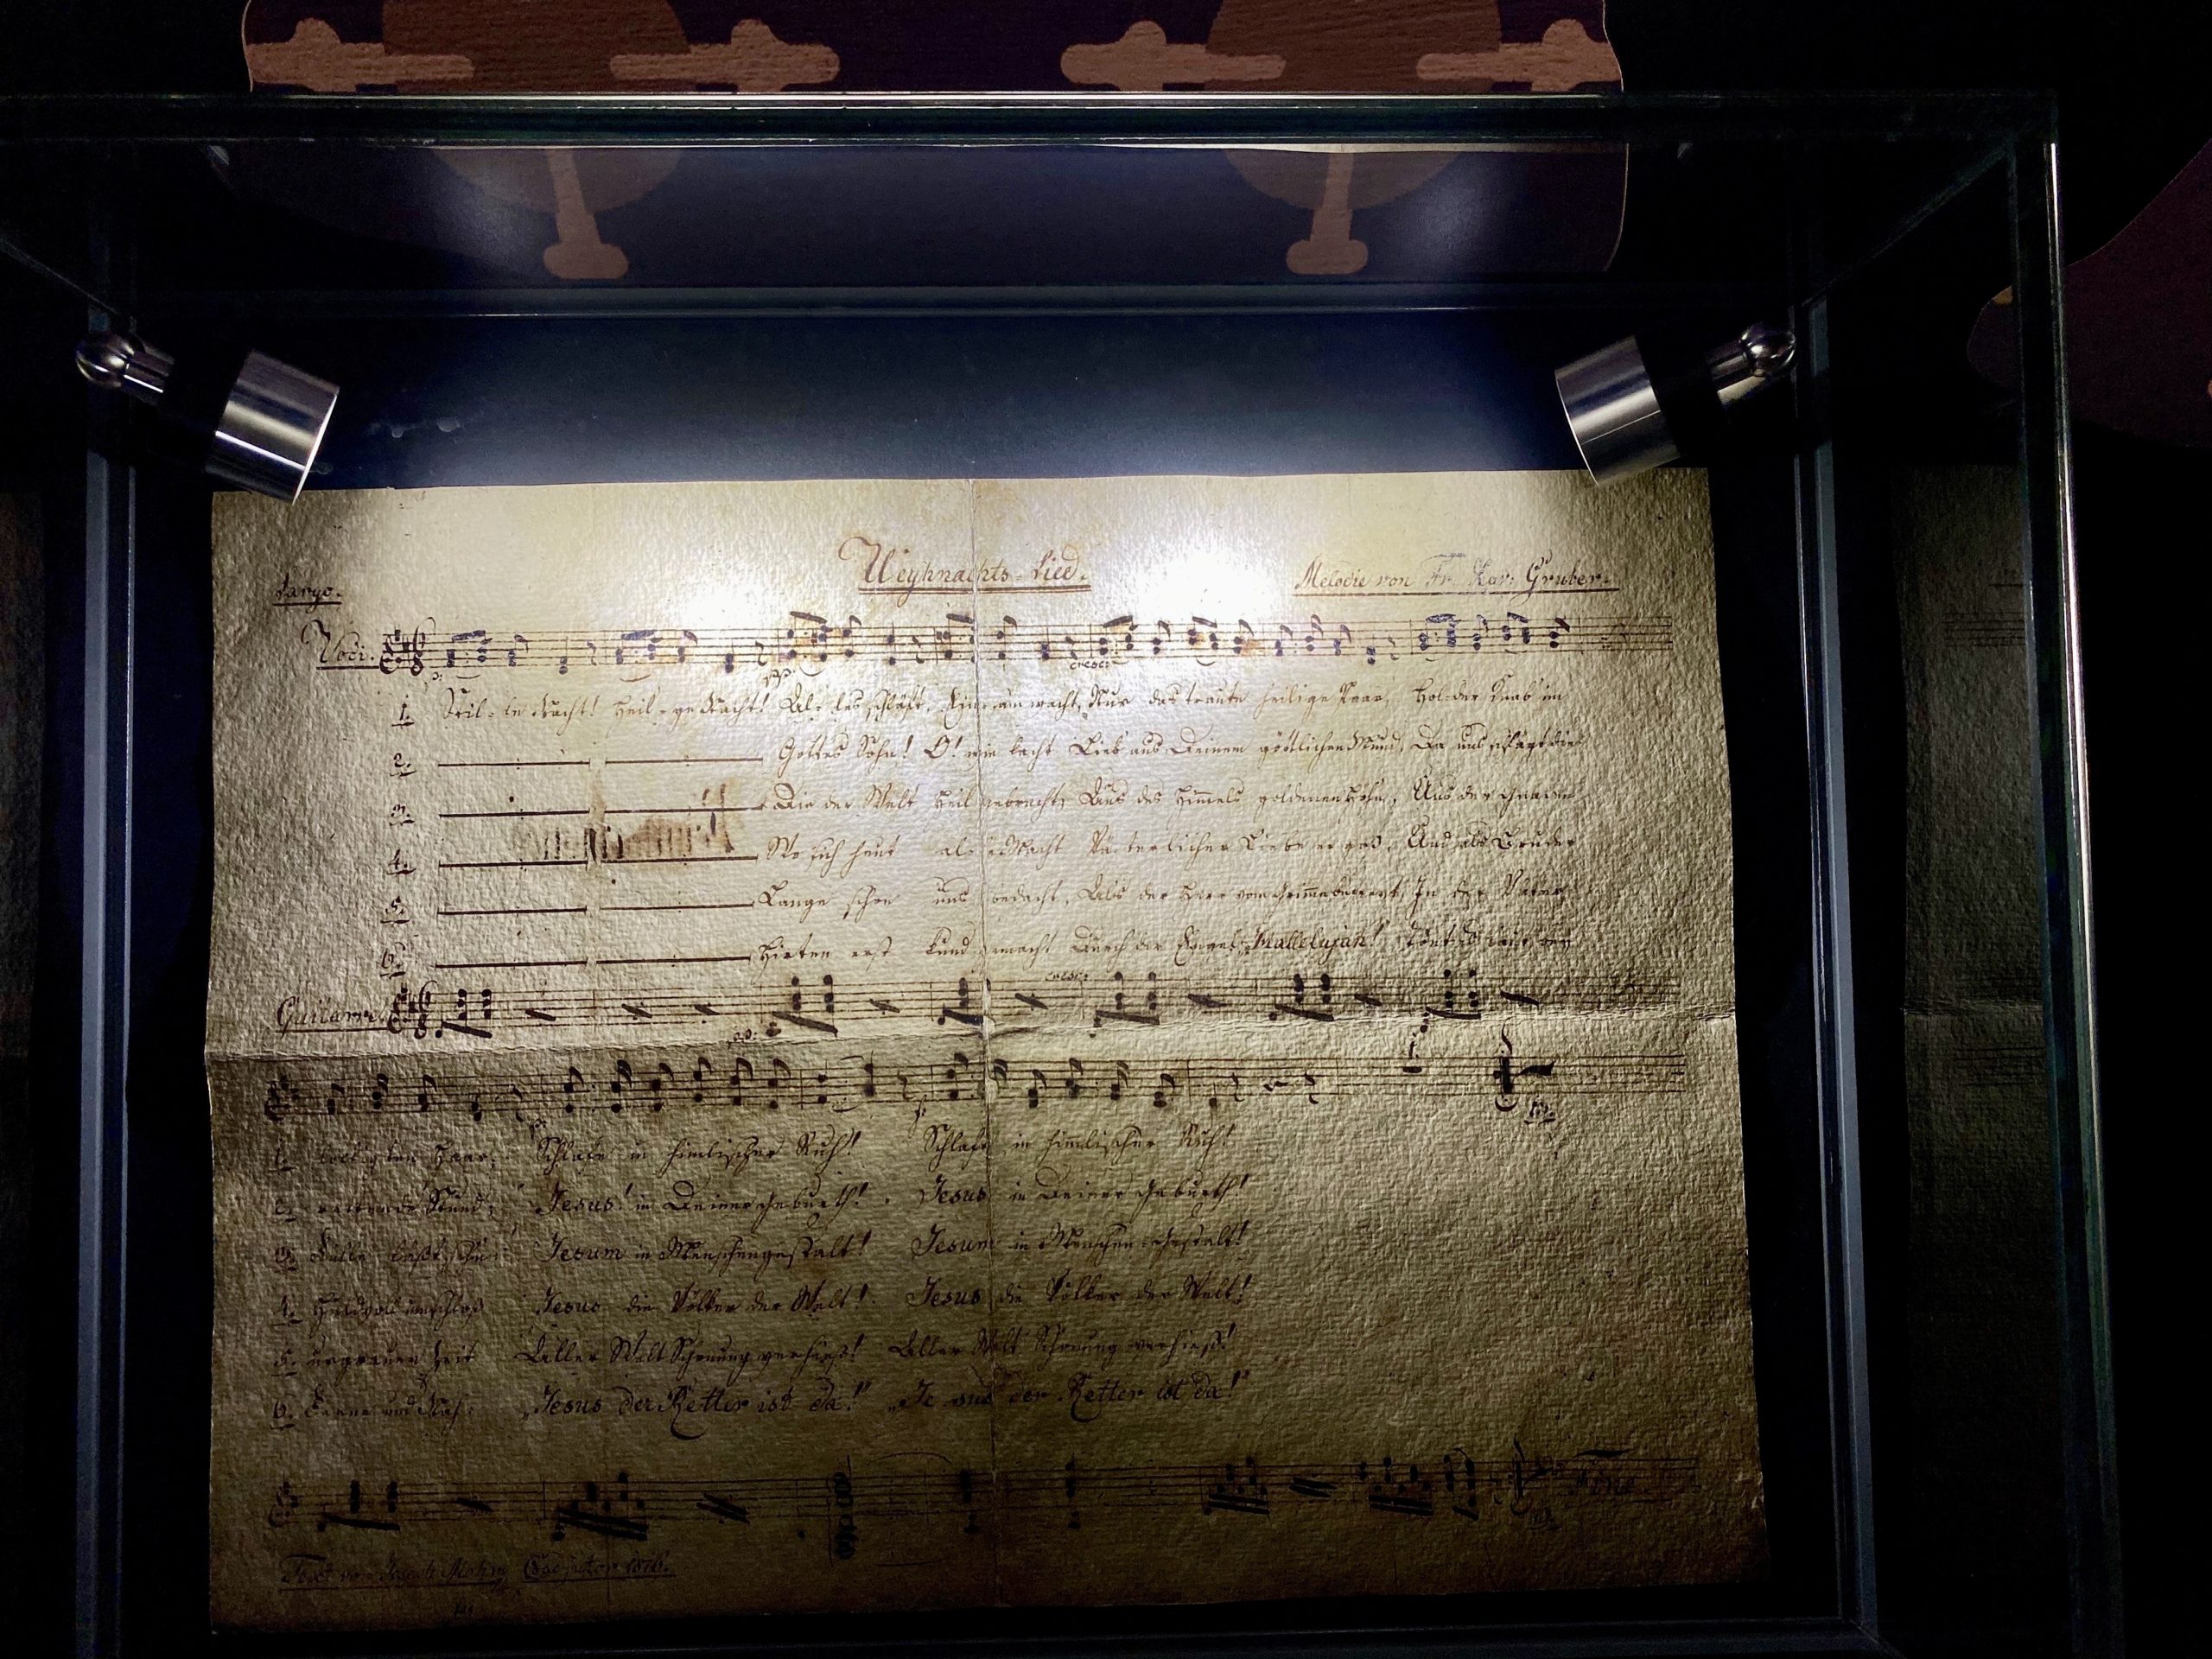 Weyhnachts-Lied.
Melodie von Fr. Xav: Gruber.
Largo.
Voci.
cresc:
1. Stil-le Nacht! Heil-ge Nacht! Al-les schläft. Einsam wacht, Nur das traute heilige Paar, Hol-der Knab' im
2. Gottes Sohn! O! wie lacht Lieb' aus Deinem göttlichen Mund, Da uns schlägt die
3. Die der Welt Heil gebracht, Aus des Himmels goldenen Höhn, Aus der Gnaden
4. Wo sich heut alle Macht Väterlicher Liebe ergoß, Und als Bruder
5. Lange schon uns bedacht, Als der Herr vom Grimme befreyt, In der Väter
6. Hirten erst kund gemacht Durch der Engel „Hallelujah!“ Tönt es laut bey
cresc:
Guitarre.
1. lockigten Haar; Schlafe in himlischer Ruh! Schlafe in himlischer Ruh!
2. rettende Stund; Jesus! in Deiner Geburth! Jesus in Deiner Geburth!
3. Fülle läßt sehn: Jesum in Menschengestalt! Jesum in Menschen-Gestalt!
4. Huldvoll umschloß Jesus die Völker der Welt! Jesus die Völker der Welt!
5. urgrauer Zeit Aller Welt Schonung verhieß! Aller Welt Schonung verhieß!
6. Ferne und Nah: „Jesus der Retter ist da!“ „Jesus der Retter ist da!“
Fine
Text von Joseph Mohr Coadjutor 1816.